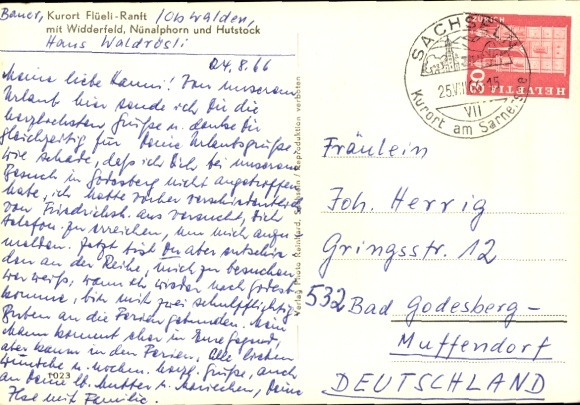 Bauer, Kurort Flüeli-Ranft /Obwalden,
mit Widderfeld, Nünalphorn und Hutstock
Haus Waldrösli
24.8.66
Meine liebe Hanni! Von unserem
Urlaub hier sende ich Dir die
herzlichsten Grüße u. danke Dir
gleichzeitig für Deine Urlaubsgrüße.
Wie schade, daß ich Dich bei unserem
Besuch in Godesberg nicht angetroffen
habe, ich hatte vorher verschiedentlich
von Friedrichsh. aus versucht, Dich
telefon. zu erreichen, um mich anzu-
melden. Jetzt bist Du aber entschie-
den an der Reihe, mich zu besuchen,
wer weiß, wann ich wieder nach Godesb.
komme, bin mit zwei schulpflichtigen
an die Ferien gebunden. Mein
Mann kommt eher in Eure Gegend,
aber kaum in den Ferien. Alle lieben
Wünsche u. nochm. herzl. Grüße, auch
an Deine lb. Mutter u. Mariechen, Deine
Ilse mit Familie.
1023
Verlag Photo Reinhard, Sachseln / Reproduktion verboten
SACHSELN
25.VIII.66-15
VII
Kurort am Sarner-See
ZÜRICH
30
HELVETIA
Fräulein
Joh. Herrig
Gringsstr. 12
532 Bad Godesberg-
Muffendorf
DEUTSCHLAND